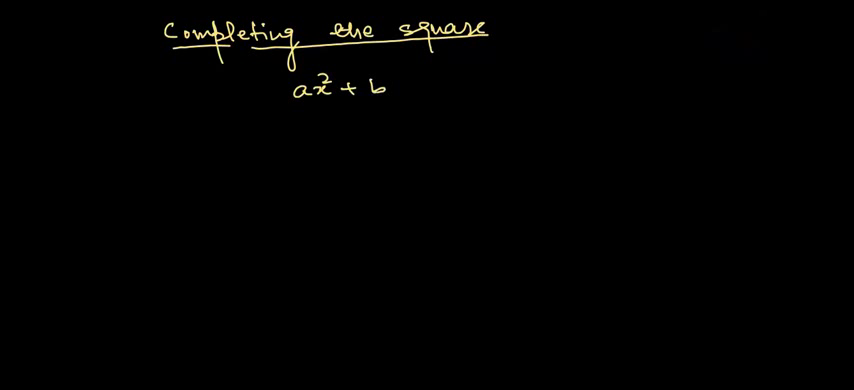 Completing the square
ax² + b